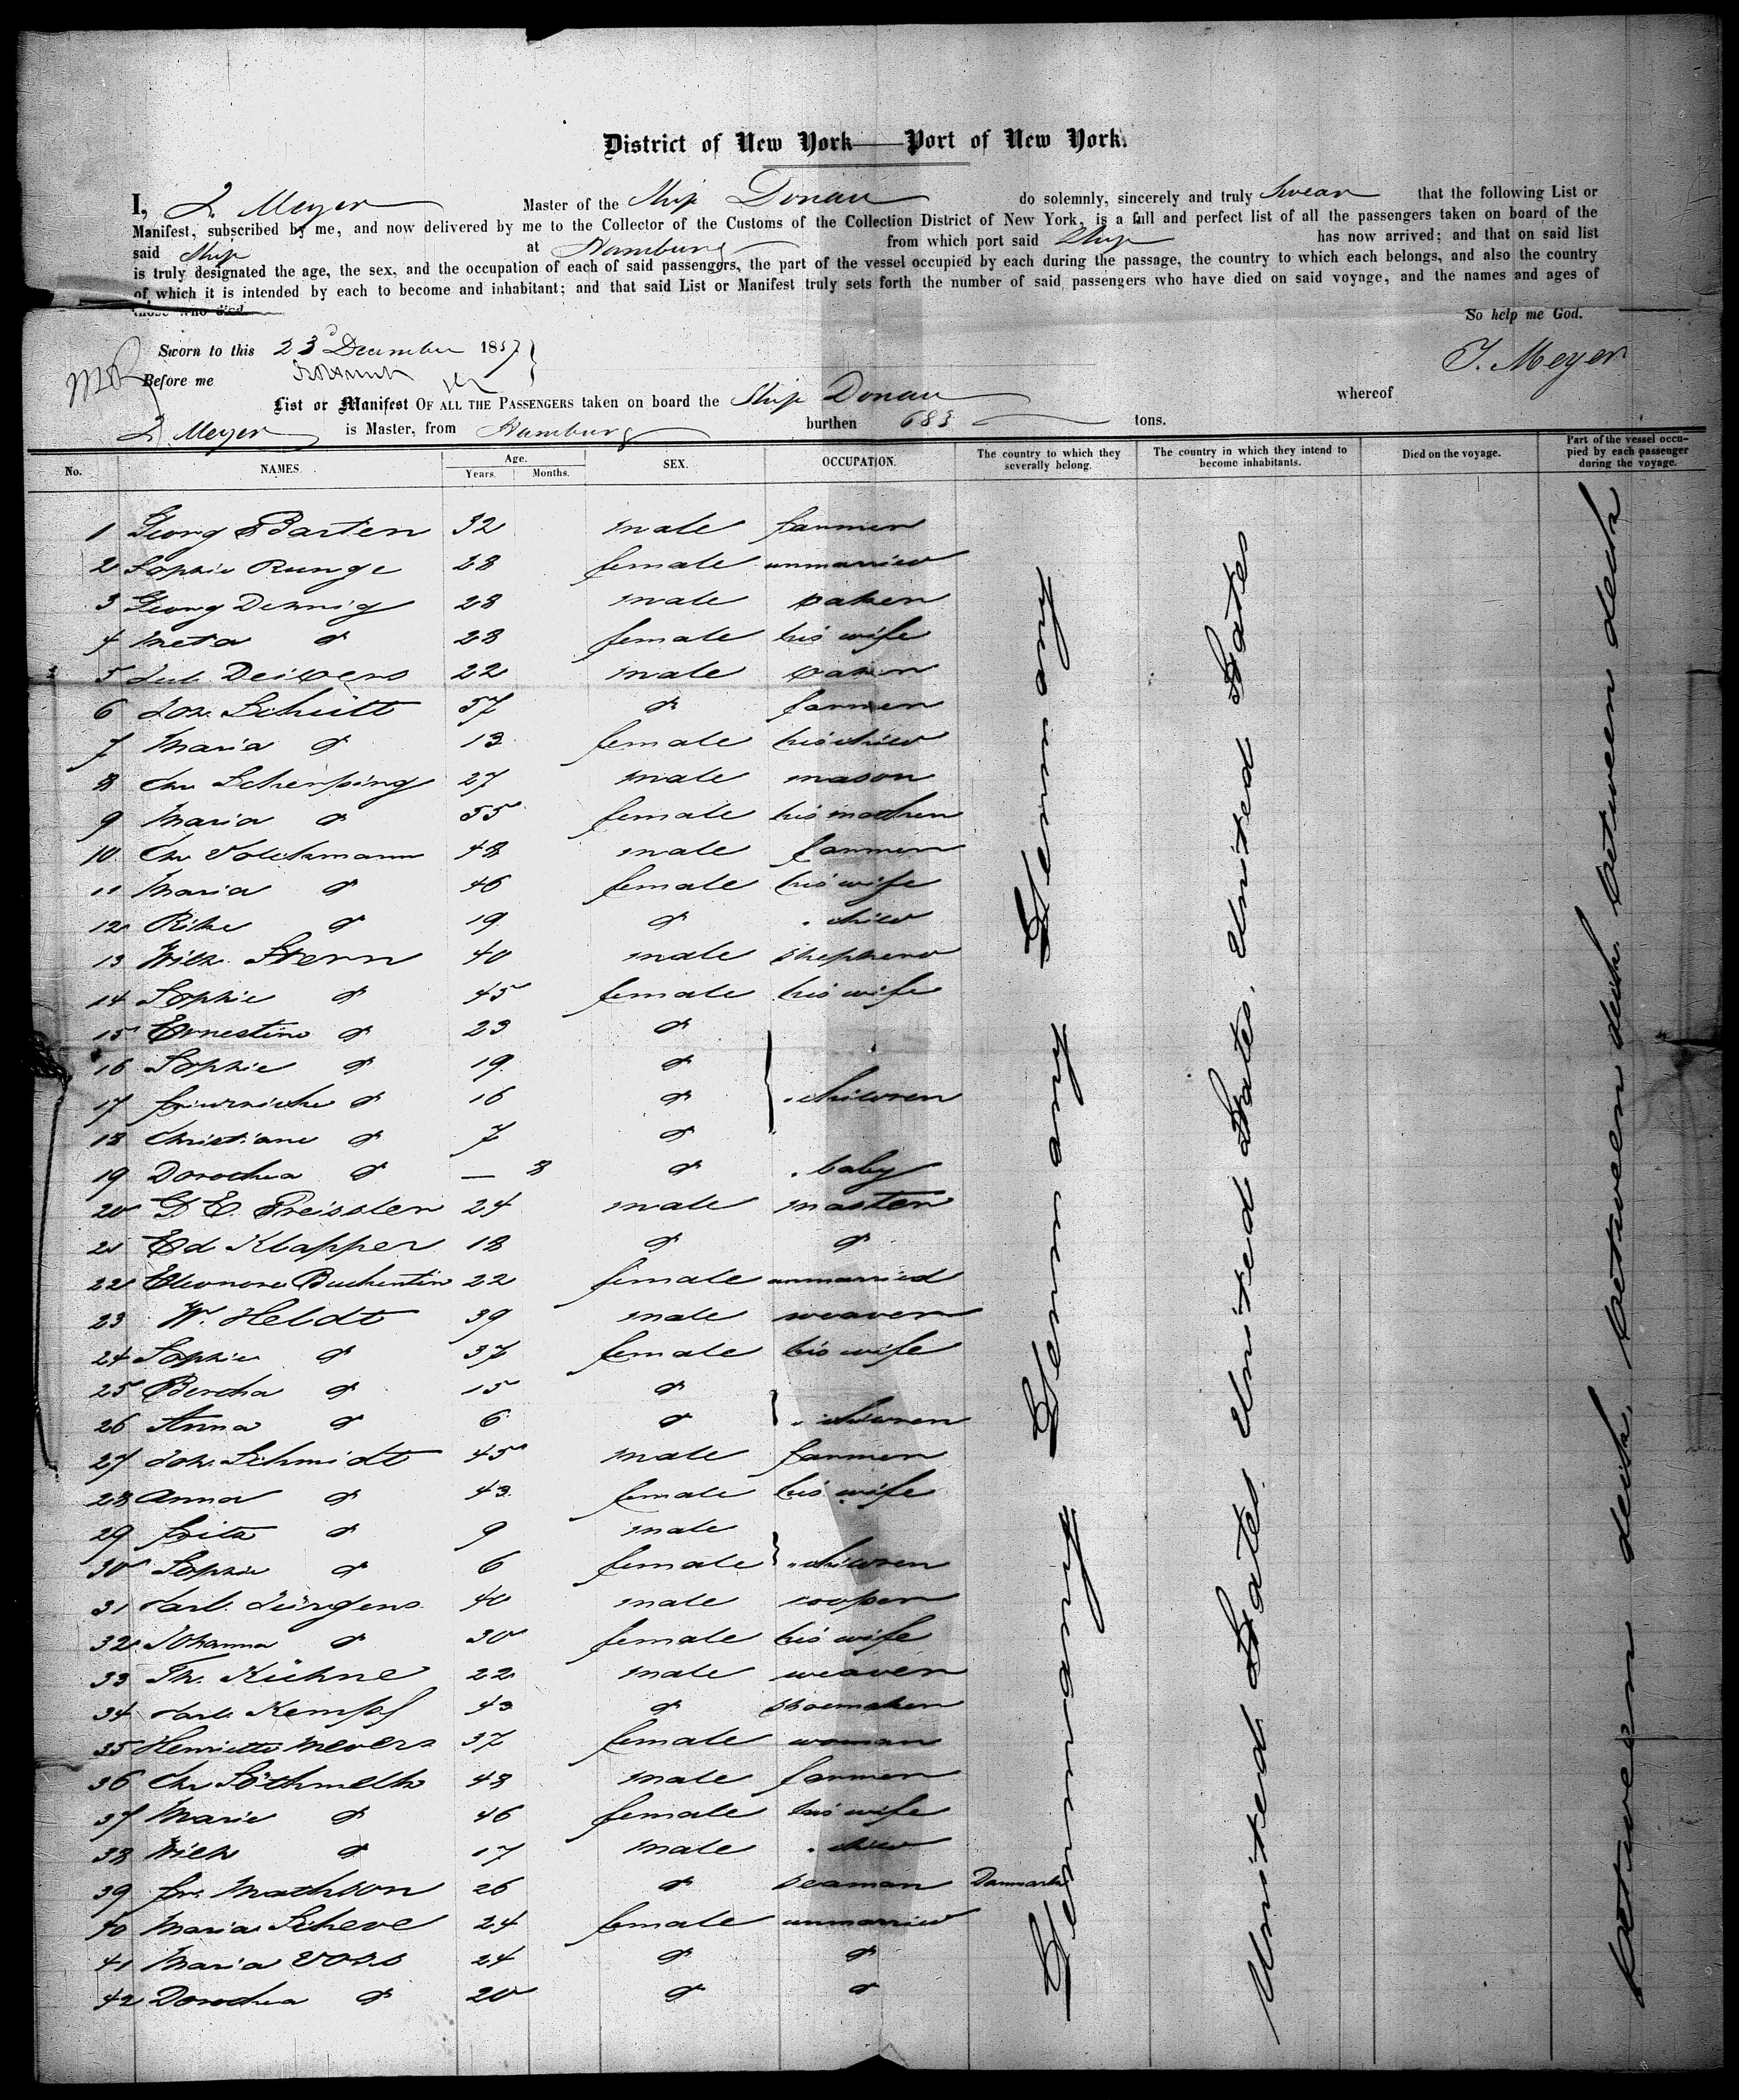 District of New York — Port of New York.
I, J. Meyer Master of the Ship Donau do solemnly, sincerely and truly Swear that the following List or
Manifest, subscribed by me, and now delivered by me to the Collector of the Customs of the Collection District of New York, is a full and perfect list of all the passengers taken on board of the
said Ship at Hamburg from which port said Ship has now arrived; and that on said list
is truly designated the age, the sex, and the occupation of each of said passengers, the part of the vessel occupied by each during the passage, the country to which each belongs, and also the country
of which it is intended by each to become and inhabitant; and that said List or Manifest truly sets forth the number of said passengers who have died on said voyage, and the names and ages of
those who died. So help me God.
Sworn to this 23d December 1857 J. Meyer
Before me
List or Manifest OF ALL THE PASSENGERS taken on board the Ship Donau whereof
J. Meyer is Master, from Hamburg burthen 683 tons.
No. NAMES. Age. Years. Months. SEX. OCCUPATION. The country to which they severally belong. The country in which they intend to become inhabitants. Died on the voyage. Part of the vessel occupied by each passenger during the voyage.
1 Georg Barten 32 male farmer
2 Sophie Runge 28 female unmarried
3 Georg Dennig 28 male baker
4 Meta d 28 female his wife
5 22 male baker
6 Joh. Schütt 57 d farmer
7 Maria d 13 female his child
8 Chr Scherping 27 male mason
9 Maria d 55 female his mother
10 Chr Volckmann 48 male farmer
11 Maria d 46 female his wife
12 Rike d 19 d " child
13 Wilh. Stern 40 male shepherd
14 Sophie d 45 female his wife
15 Ernestine d 23 d
16 Sophie d 19 d
17 d 16 d " children
18 Christiane d 7 d
19 Dorothea d — 8 d " baby
20 G E. Preissler 24 male master
21 Ed Klapper 18 d d
22 Eleonore Buchentin 22 female unmarried
23 W. Heldt 39 male weaver
24 Sophie d 37 female his wife
25 Bertha d 15 d
26 Anna d 6 d " children
27 Joh. Schmidt 45 male farmer
28 Anna d 43 female his wife
29 Fritz d 9 male
30 Sophie d 6 female " children
31 Carl Jürgens 40 male cooper
32 Johanna d 30 female his wife
33 Th. Kühne 22 male weaver
34 Carl Kempf 43 d shoemaker
35 Henriette Mevers 37 female woman
36 Chr 48 male farmer
37 Marie d 46 female his wife
38 Wilh d 17 male " child
39 Fr. Mathson 26 d seaman Danmark
40 Maria Scheve 24 female unmarried
41 Maria Voss 24 d d
42 Dorothea d 20 d d
Germany Germany Germany
United States United States. United States
between deck. between deck. between deck